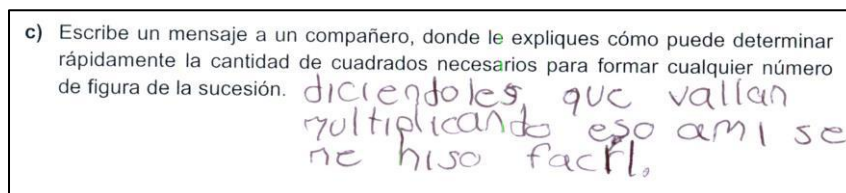 c) Escribe un mensaje a un compañero, donde le expliques cómo puede determinar
rápidamente la cantidad de cuadrados necesarios para formar cualquier número
de figura de la sucesión. diciendoles que vallan
multiplicando eso ami se
me hiso facil.